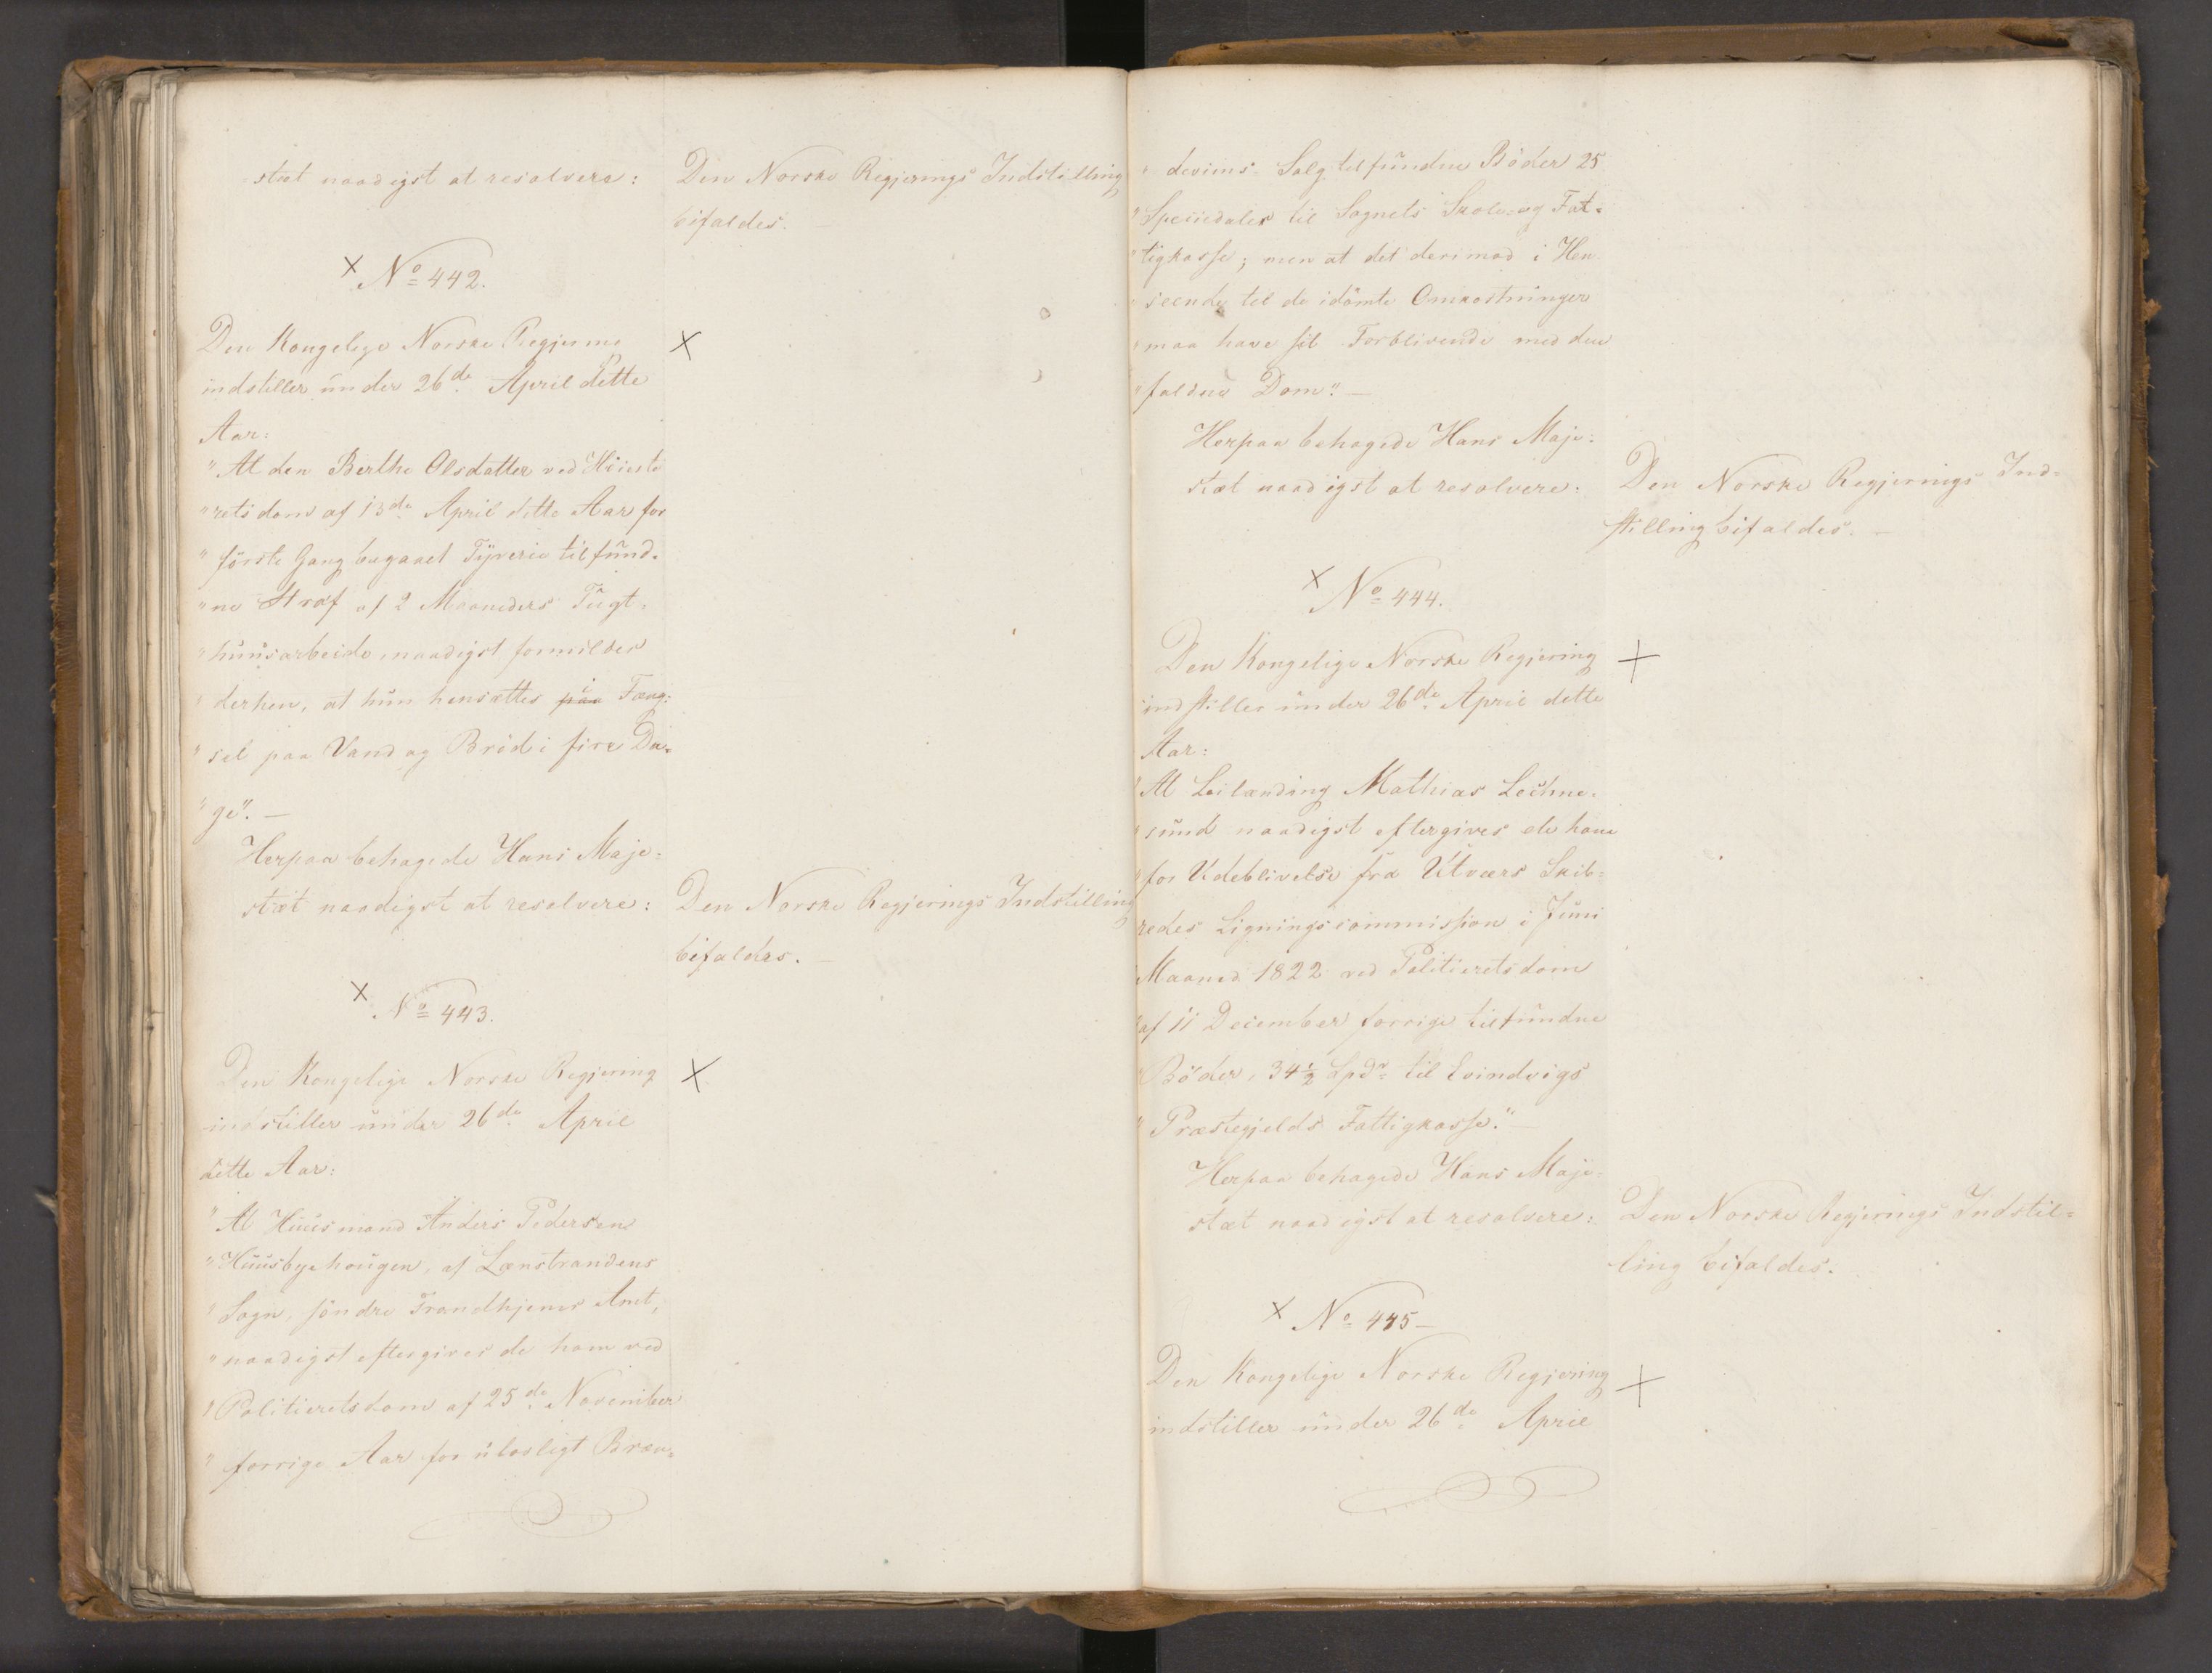 stæt naadigst at resolvere:
Den Norske Regjerings Indstilling
bifaldes. —
× No 442.
Den Kongelige Norske Regjering ×
indstiller under 26de April dette
Aar:
"At den Berthe Olsdatter ved Høieste
"retsdom af 13de April dette Aar for
"første Gang begaaet Tyverie tilfund-
"ne Straf af 2 Maaneders Tugt-
"huusarbeide naadigst formildes
"derhen, at hun hensættes i Fæng-
"sel paa Vand og Brød i fire Da-
"ge". —
Herpaa behagede Hans Maje-
stæt naadigst at resolvere:
Den Norske Regjerings Indstilling
bifaldes. —
× No 443.
Den Kongelige Norske Regjering ×
indstiller under 26de April
dette Aar:
"At Huusmand Anders Pedersen
"Huusbyehougen, af Lænstrandens
"Sogn, søndre Trondhjems Amt,
"naadigst eftergives de ham ved
"Politieretsdom af 25de November
"forrige Aar for ulovligt Bræn-
"deviins-Salg tilfundne Bøder 25
"Speciedaler til Sognets Skole- og Fat-
"tigkasse; men at det derimod i Hen-
"seende til de idømte Omkostninger
"maa have sit Forblivende med den
"faldne Dom". —
Herpaa behagede Hans Maje-
stæt naadigst at resolvere:
Den Norske Regjerings Ind-
stilling bifaldes. —
× No 444.
Den Kongelige Norske Regjering ×
indstiller under 26de April dette
Aar:
"At Leilænding Mathias
"sund naadigst eftergives de ham
"for Udeblivelse fra Utværs Skib-
redes Ligningscommission i Juni
Maaned 1822 ved Politieretsdom
"af 11 December forrige tilfundne
"Bøder, 34½ Spdr til Evindvigs
"Præstegjelds Fattigkasse". —
Herpaa behagede Hans Maje-
stæt naadigst at resolvere:
Den Norske Regjerings Indstil-
ling bifaldes.
× No 445 —
Den Kongelige Norske Regjering ×
indstiller under 26de April